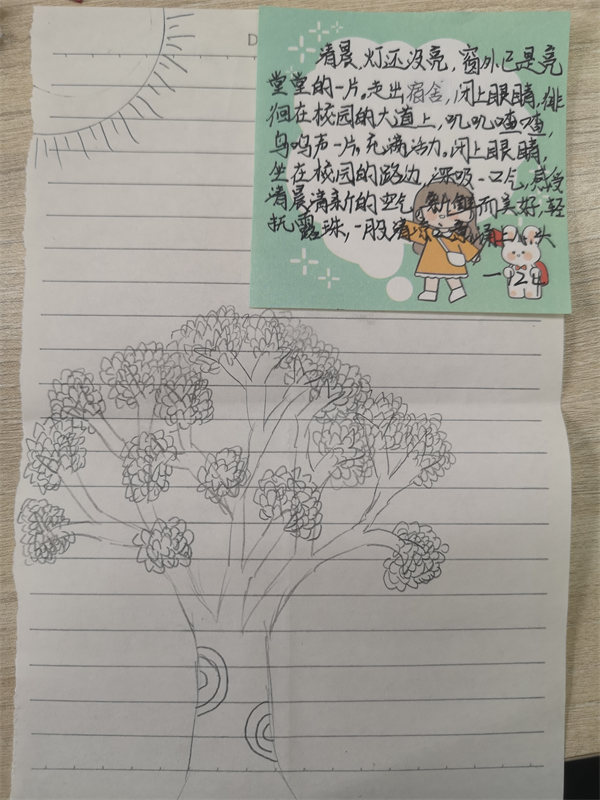 D
清晨,灯还没亮,窗外已是亮
堂堂的一片。走出宿舍,闭上眼睛,徘
徊在校园的大道上,叽叽喳喳,
鸟鸣声一片,充满活力。闭上眼睛,
坐在校园的路边,深吸一口气,感受
清晨满新的空气,新鲜而美好,轻
抚露珠,一股清凉之意涌上心头